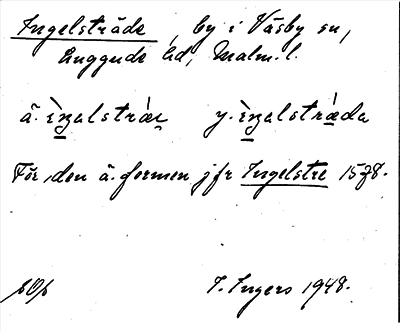 Ingelsträde, by i Väsby sn,
Luggude hd, Malm. l.
ä. ìŋalstrǽ y. ìŋalstrǽda
För den ä. formen jfr Ingelstre 1578.
I. Ingers 1948.